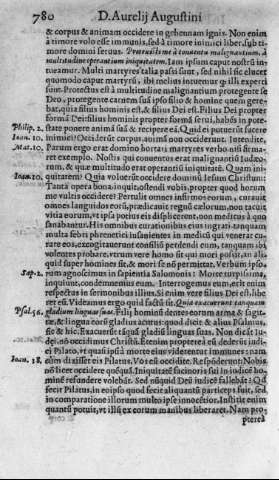 780 D. Aurelij Augustini
& corpus & animam occidere in gehennam ignis. Non enim
à timore volo esse immunis, sed à timore inimici liber, sub ti-
more domini seruus. Protexisti me à conuentu malignantium, à
multitudine operantium iniquitatem. Iam ipsum caput nostrū in-
tueamur. Multi martyres talia passi sunt, sed nihil sic elucet
quomodo caput martyrū, ibi melius intuemur qđ illi experti
sunt. Protectus est à multitudine malignantium protegente se
Deo, protegente carnem suā ipso filio & homine quem gere-
bat, quia filius hominis est, & filius Dei est. Filius Dei propter
formā Dei: filius hominis propter formā serui, habēs in pote-
Philip. 2. state ponere animā suā & recipere eā. Quid ei potuerūt facere
Ioan. 10. inimici? Occiderūt corpus, animā non occiderunt. Intendite.
Mat. 10. Parum ergo erat dominum hortari martyres verbo nisi firma-
ret exemplo. Nostis qui conuentus erat malignantiū Iudæo-
rum, & quæ multitudo erat operantiū iniquitatē. Quam ini-
Ioan. 10. quitatem? Quia voluerūt occidere dominū Iesum Christum:
Tanta opera bona, inquit, ostendi vobis, propter quod horum
me vultis occidere? Pertulit omnes infirmos eorum, curauit
omnes languidos eorū, prædicauit regnū cælorum, non tacuit
vitia eorum, vt ipsa potius eis displicerent, non medicus à quo
sanabantur. His omnibus curationibus eius ingrati, tanquam
multa febre phrenetici insanientes in medicū qui venerat cu-
rare eos, excogitauerunt consiliū perdendi eum, tanquam ibi
volentes probare, vtrum vere homo sit qui mori possit, an ali-
quid super homines sit, & mori se nō permittat. Verbum ipso-
Sap. 2. rum agnoscimus in sapientia Salomonis: Morte turpissima,
inquiunt, condemnemus eum. Interrogemus eum, erit enim
respectus in sermonibus illius. Si enim vere filius Dei est, libe-
ret eū. Videamus ergo quid factū sit. Quia exacuerunt tanquam
Psal. 56. gladium linguas suas. Filij hominū dentes eorum arma & sagit-
tæ, & lingua eorū gladius acutus: quod dicit & alius Psalmus,
sic & hic, Exacuerūt tāquā gladiū linguas suas. Non dicāt Iu-
dæi, nō occidimus Christū. Etenim propterea eū dederūt iudi-
ci Pilato, vt quasi ipsi à morte eius viderentur immunes: nam
Ioan. 18. cum dixisset eis Pilatus, Vos eū occidite. Respōderunt: Nobis
nō licet occidere quenquā. Iniquitatē facinoris sui in iudicē ho-
minē refundere volebāt. Sed nūquid Deū iudicē fallebāt? Qđ
fecit Pilatus, in eo ipso quod fecit aliquantū particeps fuit, sed
in comparatione illorum multo ipse innocētior. Institit enim
quantū potuit, vt illū ex eorum manibus liberaret. Nam pro-
pterea